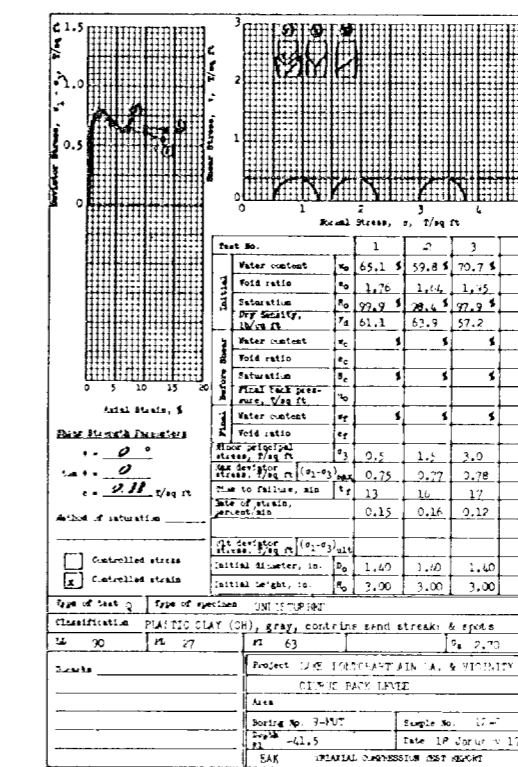 1.5
1.0
0.5
0
0 5 10 15 20
Axial Strain, %
Deviator Stress, σ1 - σ3, T/sq ft
3
2
1
0
0 1 2 3 4
Shear Stress, τ, T/sq ft
Normal Stress, σ, T/sq ft
Shear Strength Parameters
φ = 0 °
tan φ = 0
c = 0.38 T/sq ft
Method of saturation
Controlled stress
x Controlled strain
Test No. 1 2 3
Initial
Water content wo 65.1 % 59.8 % 70.7 %
Void ratio eo 1.76
Saturation So 99.9 % 98.4 % 97.9 %
Dry density, lb/cu ft γd 61.1 63.9 57.2
Before Shear
Water content wc % % %
Void ratio ec
Saturation Sc % % %
Final back pressure, T/sq ft uo
Final
Water content wf % % %
Void ratio ef
Minor principal stress, T/sq ft σ3 0.5 1.5 3.0
Max deviator stress, T/sq ft (σ1-σ3)max 0.75 0.77 0.78
Time to failure, min tf 13 17
Rate of strain, percent/min 0.15 0.16 0.12
Ult deviator stress, T/sq ft (σ1-σ3)ult
Initial diameter, in. Do 1.40 1.40 1.40
Initial height, in. Ho 3.00 3.00 3.00
Type of test Q Type of specimen UNDISTURBED
Classification PLASTIC CLAY (CH), gray, contains sand streaks & spots
LL 90 PL 27 PI 63 Gs 2.70
Remarks
Project LAKE PONTCHARTRAIN LA. & VICINITY
CITRUS BACK LEVEE
Area
Boring No. 9-MUT Sample No.
Depth El -41.5 Date 18 January
EAK TRIAXIAL COMPRESSION TEST REPORT